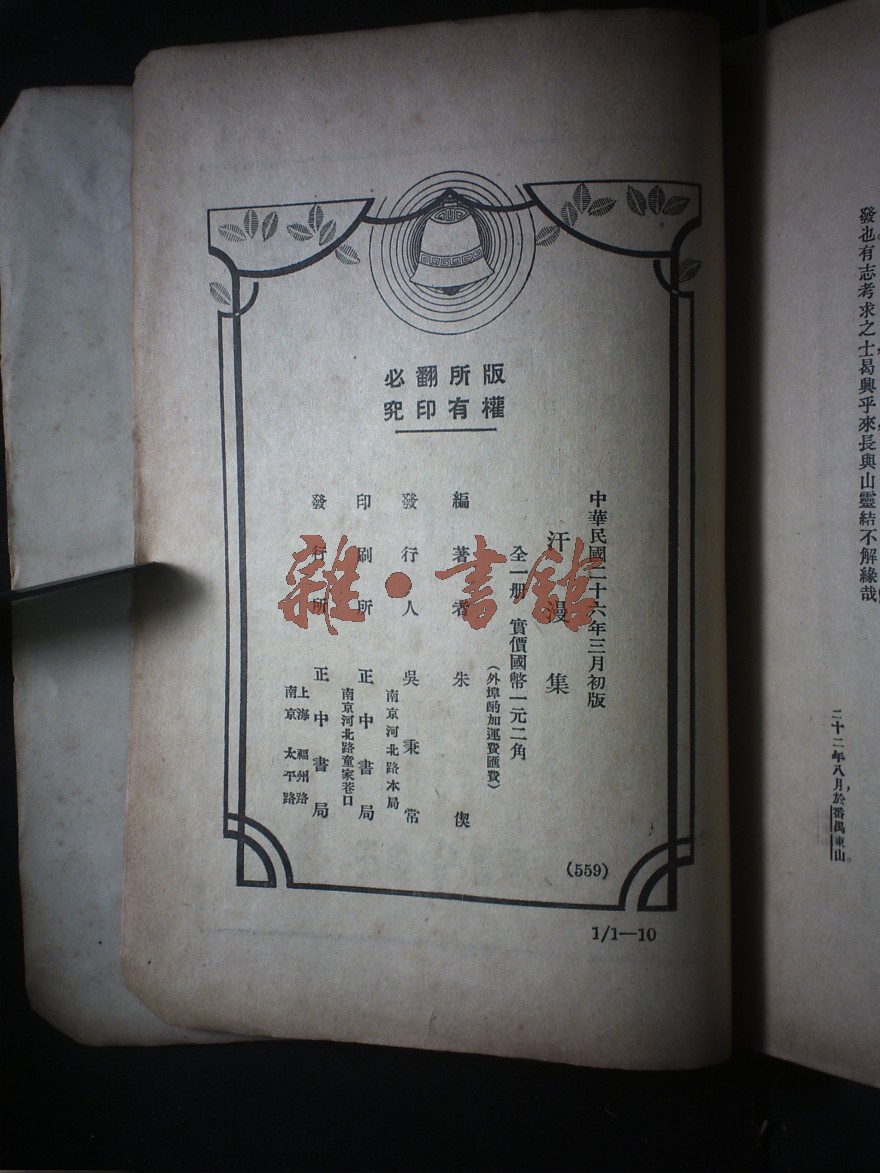 發也有志考求之士曷興乎來長與山靈結不解緣哉
二十二年八月，於番禺東山。
版權所有翻印必究
中華民國二十六年三月初版
汗漫集
全一册 實價國幣一元二角
（外埠酌加運費匯費）
編著者 朱偰
發行人 吳秉常
南京河北路本局
印刷所 正中書局
南京河北路童家巷口
發行所 正中書局
上海福州路
南京太平路
(559)
1/1—10
雜·書館